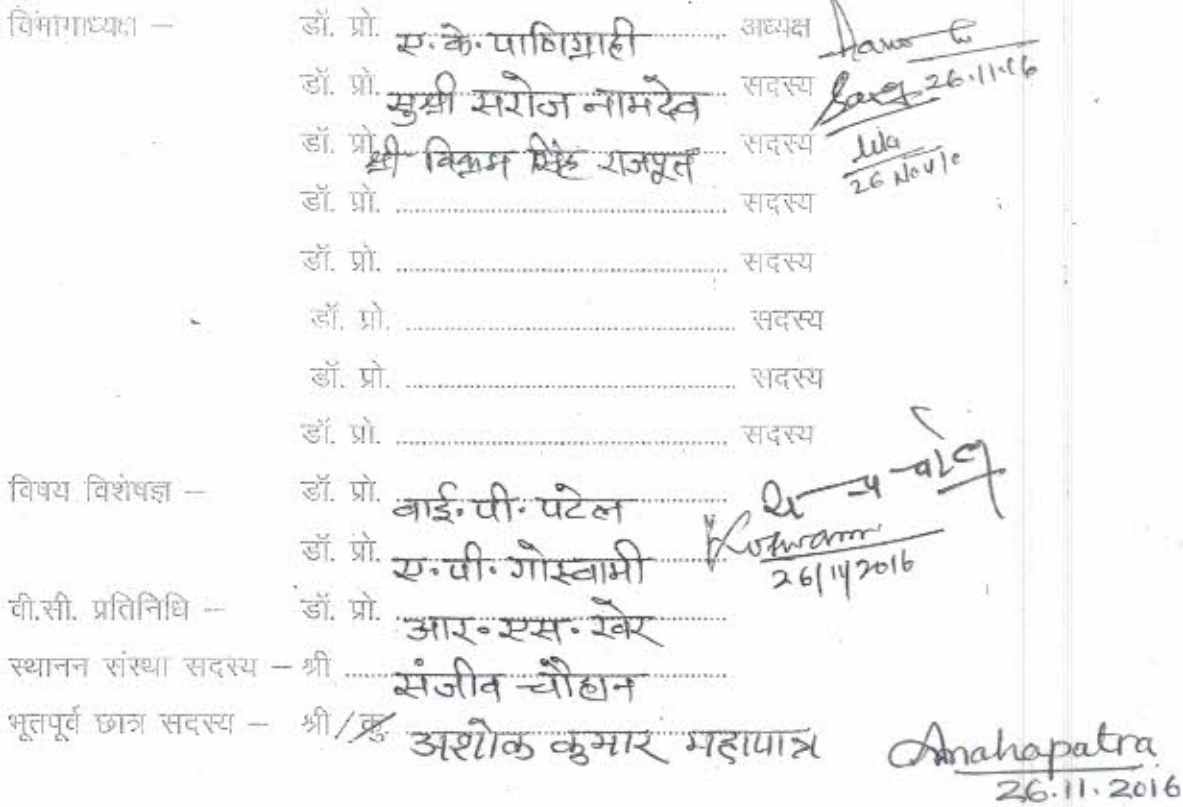 विभागाध्यक्ष – डॉ. प्रो. ए. के. पाणिग्राही अध्यक्ष
डॉ. प्रो. सुश्री सरोज नामदेव सदस्य 26.11.16
डॉ. प्रो. श्री विक्रम सिंह राजपूत सदस्य
26 Nov 16
डॉ. प्रो. .......... सदस्य
डॉ. प्रो. .......... सदस्य
डॉ. प्रो. .......... सदस्य
डॉ. प्रो. .......... सदस्य
डॉ. प्रो. .......... सदस्य
विषय विशेषज्ञ – डॉ. प्रो. वाई. पी. पटेल
डॉ. प्रो. ए. पी. गोस्वामी
26/11/2016
वी.सी. प्रतिनिधि – डॉ. प्रो. आर. एस. खेर
स्थानन संस्था सदस्य – श्री संजीव चौहान
भूतपूर्व छात्र सदस्य – श्री / कु. अशोक कुमार महापात्र Amahapatra
26.11.2016